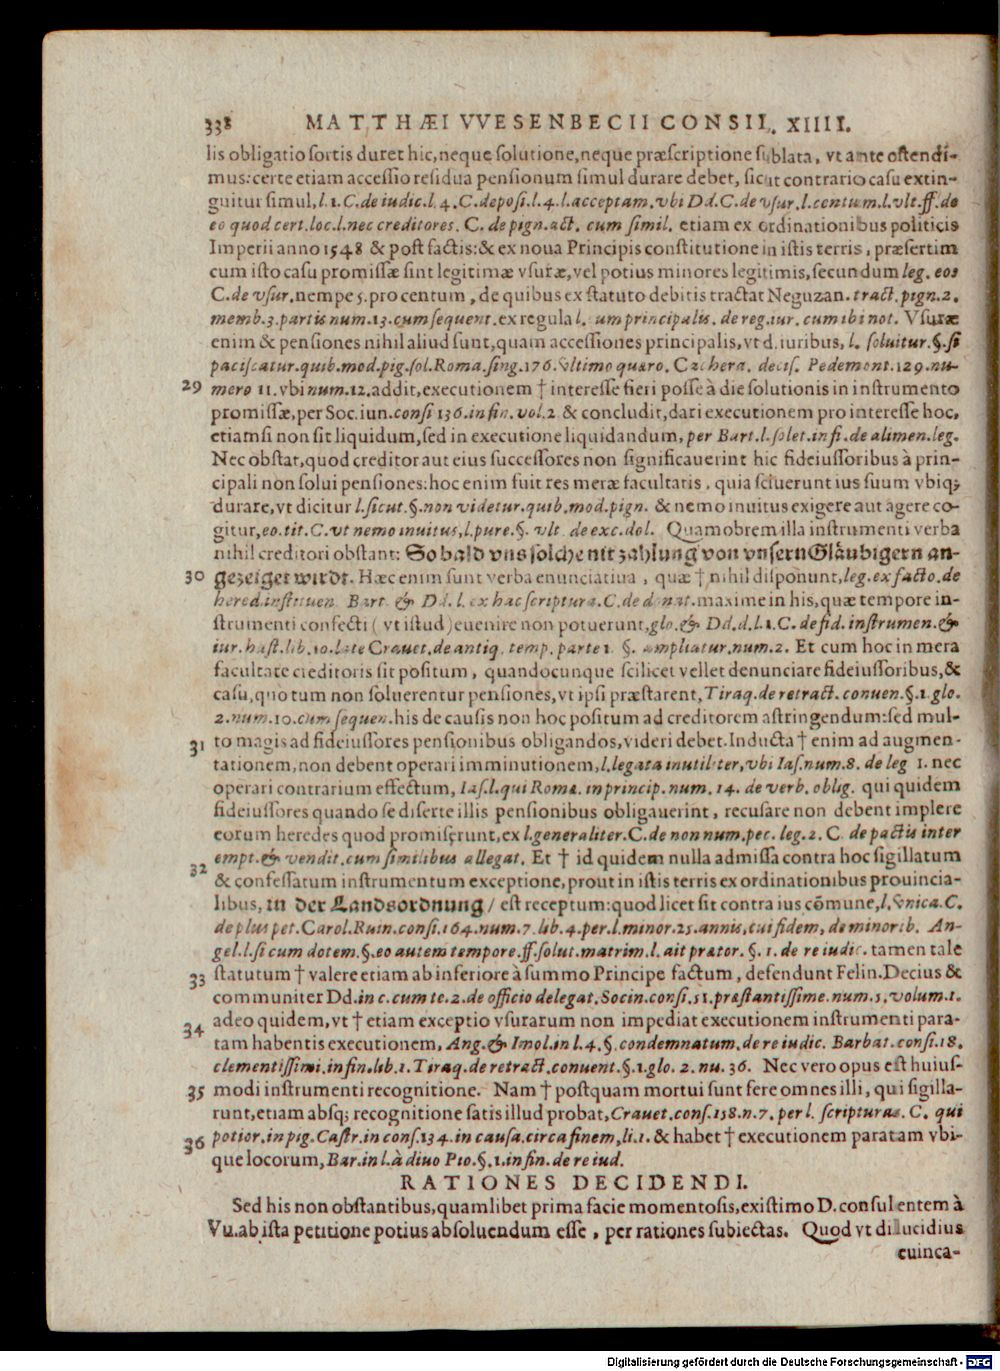 338 MATTHÆI VVESENBECII CONSIL. XIIII.
lis obligatio sortis duret hic, neque solutione, neque præscriptione sublata, vt ante ostendi-
mus: certe etiam accessio residua pensionum simul durare debet, sicut contrario casu extin-
guitur simul, l. 1. C. de iudic. l. 4. C. deposi. l. 4. l. acceptam. vbi Dd. C. de vsur. l. centum. l. vlt. ff. de
eo quod cert. loc. l. nec creditores. C. de pign. act. cum simil. etiam ex ordinationibus politicis
Imperii anno 1548 & post factis: & ex noua Principis constitutione in istis terris, præsertim
cum isto casu promissæ sint legitimæ vsuræ, vel potius minores legitimis, secundum leg. eos
C. de vsur. nempe 5. pro centum, de quibus ex statuto debitis tractat Neguzan. tract. pign. 2.
memb. 3. partis num. 13. cum sequent. ex regula l. um principalis. de reg. iur. cum ibi not. Vsuræ
enim & pensiones nihil aliud sunt, quam accessiones principalis, vt d. iuribus, l. soluitur. §. si
paciscatur. quib. mod. pig. sol. Roma. sing. 176. vltimo quæro. Cachera. decis. Pedemont. 129. nu-
29 mero 11. vbi num. 12. addit, executionem † interesse fieri posse à die solutionis in instrumento
promissæ, per Soc. iun. consi 136. in fin. vol. 2 & concludit, dari executionem pro interesse hoc,
etiamsi non sit liquidum, sed in executione liquidandum, per Bart. l. solet. in fi. de alimen. leg.
Nec obstat, quod creditor aut eius successores non significauerint hic fideiussoribus à prin-
cipali non solui pensiones: hoc enim fuit res meræ facultatis, quia sciuerunt ius suum vbiq;
durare, vt dicitur l. sicut. §. non videtur. quib. mod. pign. & nemo inuitus exigere aut agere co-
gitur, eo. tit. C. vt nemo inuitus, l. pure. §. vlt. de exc. dol. Quamobrem illa instrumenti verba
nihil creditori obstant: So bald vns solche nit zahlung von vnsern Gläubigern an-
30 gezeiget wirdt. Hæc enim sunt verba enunciatiua, quæ † nihil disponunt, leg. ex facto. de
hered. instituen. Bart. & Dd. l. ex hac scriptura. C. de donat. maxime in his, quæ tempore in-
strumenti confecti (vt istud) euenire non potuerunt, glo. & Dd. d. l. 1. C. de fid. instrumen. &
iur. hast. lib. 10. late Crauet. de antiq. temp. parte 1. §. ampliatur. num. 2. Et cum hoc in mera
facultate creditoris sit positum, quandocunque scilicet vellet denunciare fideiussoribus, &
casu, quo tum non soluerentur pensiones, vt ipsi præstarent, Tiraq. de retract. conuen. §. 1. glo.
2. num. 10. cum sequen. his de causis non hoc positum ad creditorem astringendum: sed mul-
31 to magis ad fideiussores pensionibus obligandos, videri debet. Inducta † enim ad augmen-
tationem, non debent operari imminutionem, l. legata inutiliter, vbi Ias. num. 8. de leg 1. nec
operari contrarium effectum, Ias. l. qui Roma. in princip. num. 14. de verb. oblig. qui quidem
fideiussores quando se diserte illis pensionibus obligauerint, recusare non debent implere
eorum heredes quod promiserunt, ex l. generaliter. C. de non num. pec. leg. 2. C. de pactis inter
32 empt. & vendit. cum similibus allegat. Et † id quidem nulla admissa contra hoc sigillatum
& confessatum instrumentum exceptione, prout in istis terris ex ordinationibus prouincia-
libus, in der Landsordnung / est receptum: quod licet sit contra ius cõmune, l. vnica. C.
de plus pet. Carol. Ruin. consi. 164. num. 7. lib. 4. per. l. minor. 25. annis, cui fidem, de minorib. An-
gel. l. si cum dotem. §. eo autem tempore. ff. solut. matrim. l. ait prætor. §. 1. de re iudic. tamen tale
33 statutum † valere etiam ab inferiore à summo Principe factum, defendunt Felin. Decius &
communiter Dd. in c. cum te. 2. de officio delegat. Socin. consi. 51. præstantissime. num. 5. volum. 1.
34 adeo quidem, vt † etiam exceptio vsurarum non impediat executionem instrumenti para-
tam habentis executionem, Ang. & Imol. in l. 4. §. condemnatum. de re iudic. Barbat. consi. 18.
clementissimi. in fin. lib. 1. Tiraq. de retract. conuent. §. 1. glo. 2. nu. 36. Nec vero opus est huius-
35 modi instrumenti recognitione. Nam † postquam mortui sunt fere omnes illi, qui sigilla-
runt, etiam absq; recognitione satis illud probat, Crauet. cons. 158. n. 7. per l. scripturas. C. qui
36 potior. in pig. Castr. in cons. 134. in causa. circa finem, li. 1. & habet † executionem paratam vbi-
que locorum, Bar. in l. à diuo Pio. §. 1. in fin. de re iud.
RATIONES DECIDENDI.
Sed his non obstantibus, quamlibet prima facie momentosis, existimo D. consulentem à
Vu. ab ista petitione potius absoluendum esse, per rationes subiectas. Quod vt dilucidius
euinca-
Digitalisierung gefördert durch die Deutsche Forschungsgemeinschaft - DFG